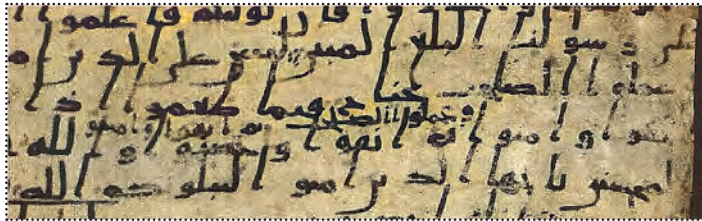 فان توليتم فاعلموا ا
على رسولنا البلغ المبين ليس على الذين ام
عملوا الصلحت جناح فيما طعموا اذا
وعملوا الصلحت ثم اتقوا وامنوا
تقوا وامنوا ثم اتقوا واحسنوا والله
لمحسنين يايها الذين امنوا ليبلونكم الله